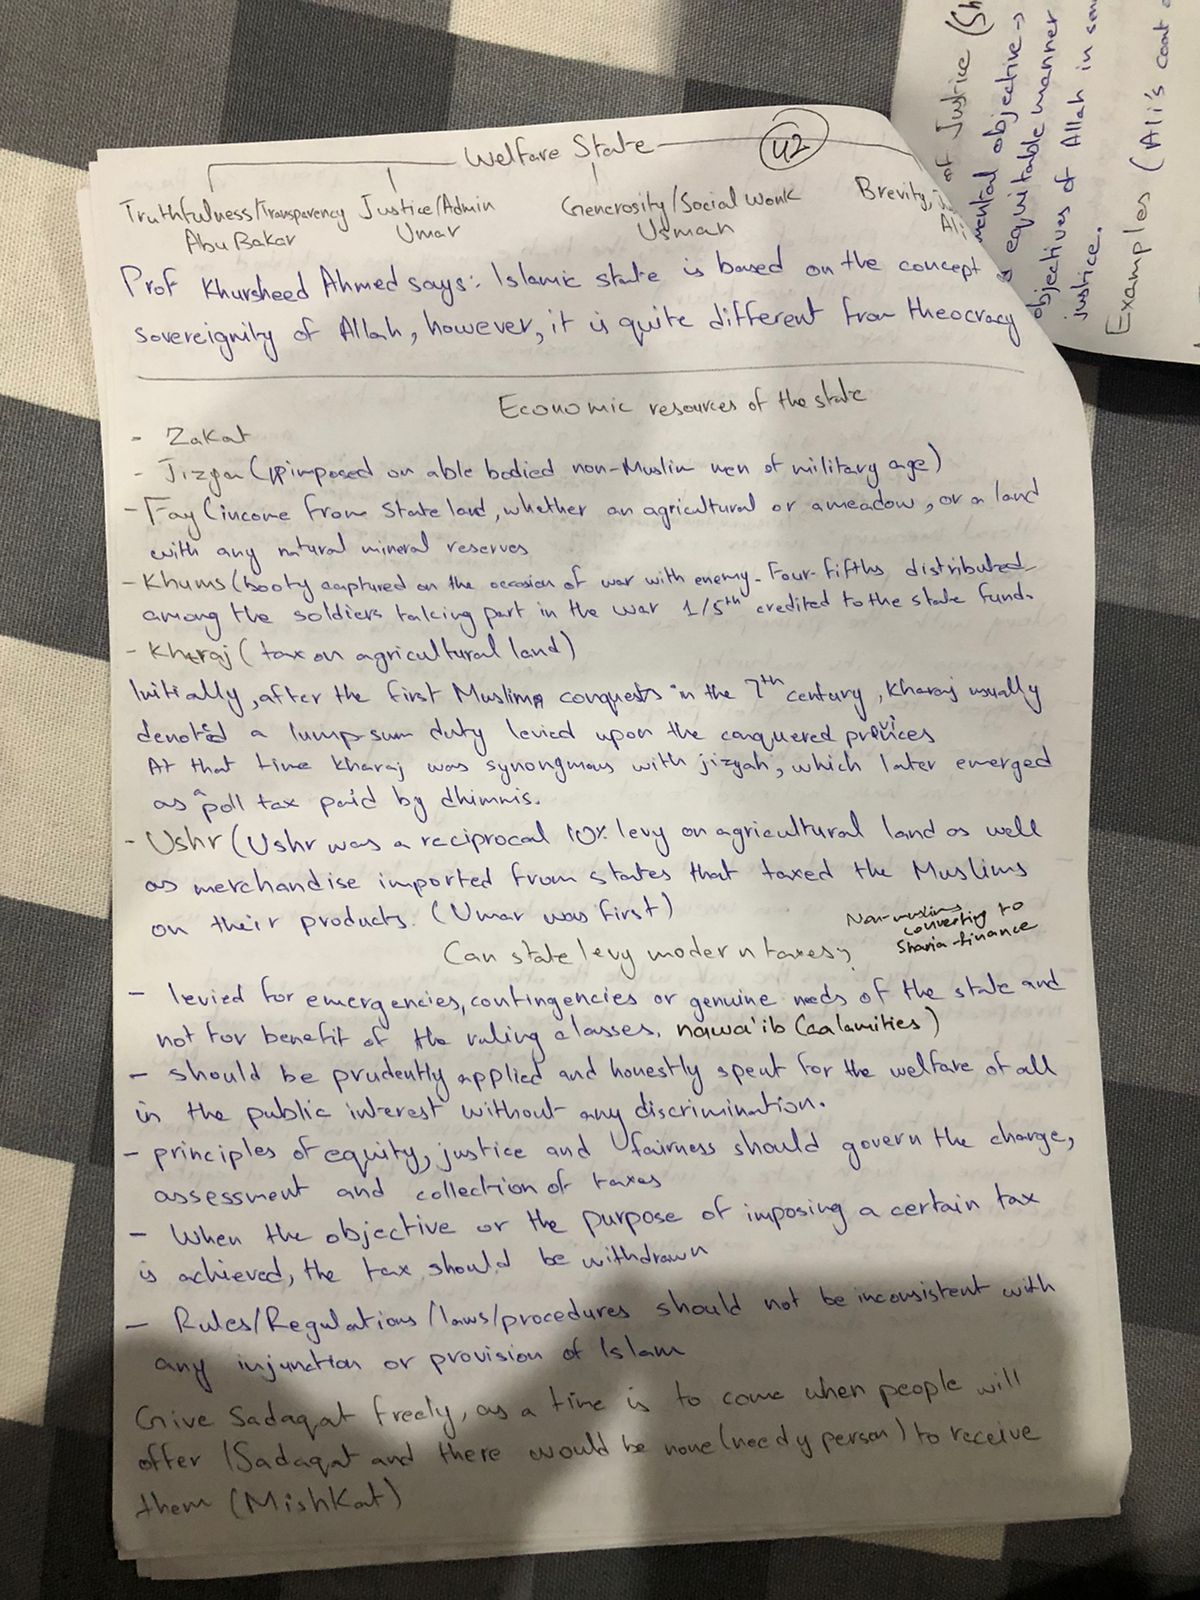 Welfare State
42
Truthfulness/Transparency Justice/Admin Generosity/Social Work Brevity,
Abu Bakar Umar Usman Ali
Prof Khursheed Ahmed says: Islamic state is based on the concept
sovereignity of Allah, however, it is quite different from theocracy
Economic resources of the state
- Zakat
- Jizya (imposed on able bodied non-Muslim men of military age)
- Fay (income from state land, whether an agricultural or a meadow, or a land
with any natural mineral reserves
- Khums (booty captured on the occasion of war with enemy. Four-fifths distributed
among the soldiers taking part in the war 1/5th credited to the state fund.
- Kharaj (tax on agricultural land)
Initially, after the first Muslim conquests in the 7th century, Kharaj usually
denoted a lump-sum duty levied upon the conquered
At that time Kharaj was synonymous with jizyah, which later emerged
as a poll tax paid by dhimmis.
- Ushr (Ushr was a reciprocal 10% levy on agricultural land as well
as merchandise imported from states that taxed the Muslims
on their products. (Umar was first)
Non-muslims
converting to
Sharia-finance
Can state levy modern taxes?
- levied for emergencies, contingencies or genuine needs of the state and
not for benefit of the ruling classes. nawa'ib (calamities)
- should be prudently applied and honestly spent for the welfare of all
in the public interest without any discrimination.
- principles of equity, justice and fairness should govern the charge,
assessment and collection of taxes
- When the objective or the purpose of imposing a certain tax
is achieved, the tax should be withdrawn
- Rules/Regulations/laws/procedures should not be inconsistent with
any injunction or provision of Islam
Give Sadaqat freely, as a time is to come when people will
offer Sadaqat and there would be none (needy person) to receive
them (Mishkat)
of Justice
mental objective →
equitable manner
objectives of Allah in
justice.
Examples (Ali's coat